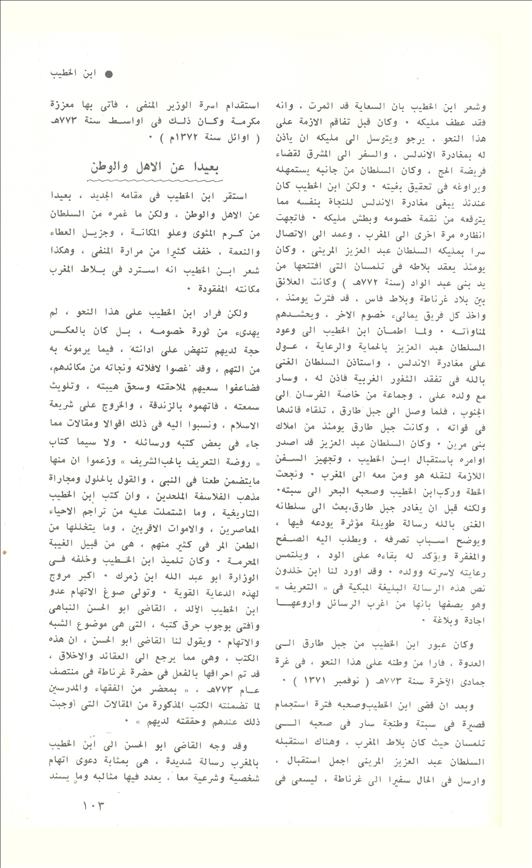 ● ابن الخطيب
وشعر ابن الخطيب بان السعاية قد اثمرت ، وانه
فقد عطف مليكه ٠ وكان قبل تفاقم الازمة على
هذا النحو ، يرجو ويتوسل الى مليكه ان ياذن
له بمغادرة الاندلس ، والسفر الى المشرق لقضاء
فريضة الحج ، وكان السلطان من جانبه يستمهله
ويراوغه فى تحقيق بغيته ٠ ولكن ابن الخطيب كان
عندئذ يبغى مغادرة الاندلس للنجاة بنفسه مما
يترقعه من نقمة خصومه وبطش مليكه ٠ فاتجهت
انظاره مرة اخرى الى المغرب ، وعمد الى الاتصال
سرا بمليكه السلطان عبد العزيز المرينى ، وكان
يومئذ يعقد بلاطه فى تلمسان التى افتتحها من
يد بنى عبد الواد (سنة ٧٧٢هـ) وكانت العلائق
بين بلاد غرناطة وبلاط فاس ، قد فترت يومئذ ،
واخذ كل فريق يمالىء خصوم الاخر ، ويحشدهم
لمناوئته ٠ ولما اطمان ابن الخطيب الى وعود
السلطان عبد العزيز بالحماية والرعاية ، عول
على مغادرة الاندلس ، واستاذن السلطان الغنى
بالله فى تفقد الثغور الغربية فاذن له ، وسار
مع ولده على ، وجماعة من خاصة الفرسان الى
الجنوب ، فلما وصل الى جبل طارق ، تلقاه قائدها
فى قواته ، وكانت جبل طارق يومئذ من املاك
بنى مرين ٠ وكان السلطان عبد العزيز قد اصدر
اوامره باستقبال ابن الخطيب ، وتجهيز السفن
اللازمة لنقله هو ومن معه الى المغرب ٠ ونجحت
الخطة وركب ابن الخطيب وصحبه البحر الى سبته٠
ولكنه قبل ان يغادر جبل طارق،بعث الى سلطانه
الغنى بالله رسالة طويلة مؤثرة يودعه فيها ،
ويوضح اسباب تصرفه ، ويطلب اليه الصفح
والمغفرة ويؤكد له بقاءه على الود ، ويلتمس
رعايته لاسرته وولده ٠ وقد اورد لنا ابن خلدون
نص هذه الرسالة البليغة المبكية فى « التعريف »
وهو يصفها بانها من اغرب الرسائل واروعها
اجادة وبلاغة ٠
وكان عبور ابن الخطيب من جبل طارق الى
العدوة ، فارا من وطنه على هذا النحو ، فى غرة
جمادى الآخرة سنة ٧٧٣هـ ( نوفمبر ١٣٧١ ) ٠
وبعد ان قضى ابن الخطيب وصحبه فترة استجمام
قصيرة فى سبتة وطنجة سار فى صحبه الى
تلمسان حيث كان بلاط المغرب ، وهناك استقبله
السلطان عبد العزيز المرينى اجمل استقبال ،
وارسل فى الحال سفيرا الى غرناطة ، ليسعى فى
استقدام اسرة الوزير المنفى ، فاتى بها معززة
مكرمة وكان ذلك فى اواسط سنة ٧٧٣هـ
( اوائل سنة ١٣٧٢م ) ٠
بعيدا عن الاهل والوطن
استقر ابن الخطيب فى مقامه الجديد ، بعيدا
عن الاهل والوطن ، ولكن ما غمره من السلطان
من كرم المثوى وعلو المكانة ، وجزيل العطاء
والنعمة ، خفف كثيرا من مرارة المنفى ، وهكذا
شعر ابن الخطيب انه استرد فى بلاط المغرب
مكانته المفقودة ٠
ولكن فرار ابن الخطيب على هذا النحو ، لم
يهدىء من ثورة خصومه ، بل كان بالعكس
حجة لديهم تنهض على ادانته ، فيما يرمونه به
من التهم ، وقد غصوا لافلاته ونجاته من مكائدهم،
فضاعفوا سعيهم لملاحقته وسحق هيبته ، وتلويث
سمعته ، فاتهموه بالزندقة ، والخروج على شريعة
الاسلام ، ونسبوا اليه فى ذلك اقوالا ومقالات مما
جاء فى بعض كتبه ورسائله ٠ ولا سيما كتاب
« روضة التعريف بالحب الشريف » وزعموا ان منها
ما يتضمن طعنا فى النبى ، والقول بالحلول ومجاراة
مذهب الفلاسفة الملحدين ، وان كتب ابن الخطيب
التاريخية ، وما اشتملت عليه من تراجم الاحياء
المعاصرين ، والاموات الاقربين ، وما يتخللها من
الطعن المر فى كثير منهم ، هى من قبيل الغيبة
المحرمة ٠ وكان تلميذ ابن الخطيب وخلفه فى
الوزارة ابو عبد الله ابن زمرك ٠ اكبر مروج
لهذه الدعاية القوية ٠ وتولى صوغ الاتهام عدو
ابن الخطيب الألد ، القاضى ابو الحسن النباهى
وأفتى بوجوب حرق كتبه ، التى هى موضوع الشبه
والاتهام ٠ ويقول لنا القاضى ابو الحسن ، ان هذه
الكتب ، وهى مما يرجع الى العقائد والاخلاق ،
قد تم احراقها بالفعل فى حضرة غرناطة فى منتصف
عام ٧٧٣هـ ، « بمحضر من الفقهاء والمدرسين
لما تضمنته الكتب المذكورة من المقالات التى اوجبت
ذلك عندهم وحققته لديهم » ٠
وقد وجه القاضى ابو الحسن الى ابن الخطيب
بالمغرب رسالة شديدة ، هى بمثابة دعوى اتهام
شخصية وشرعية معا ، يعدد فيها مثالبه وما يسند
١٠٣